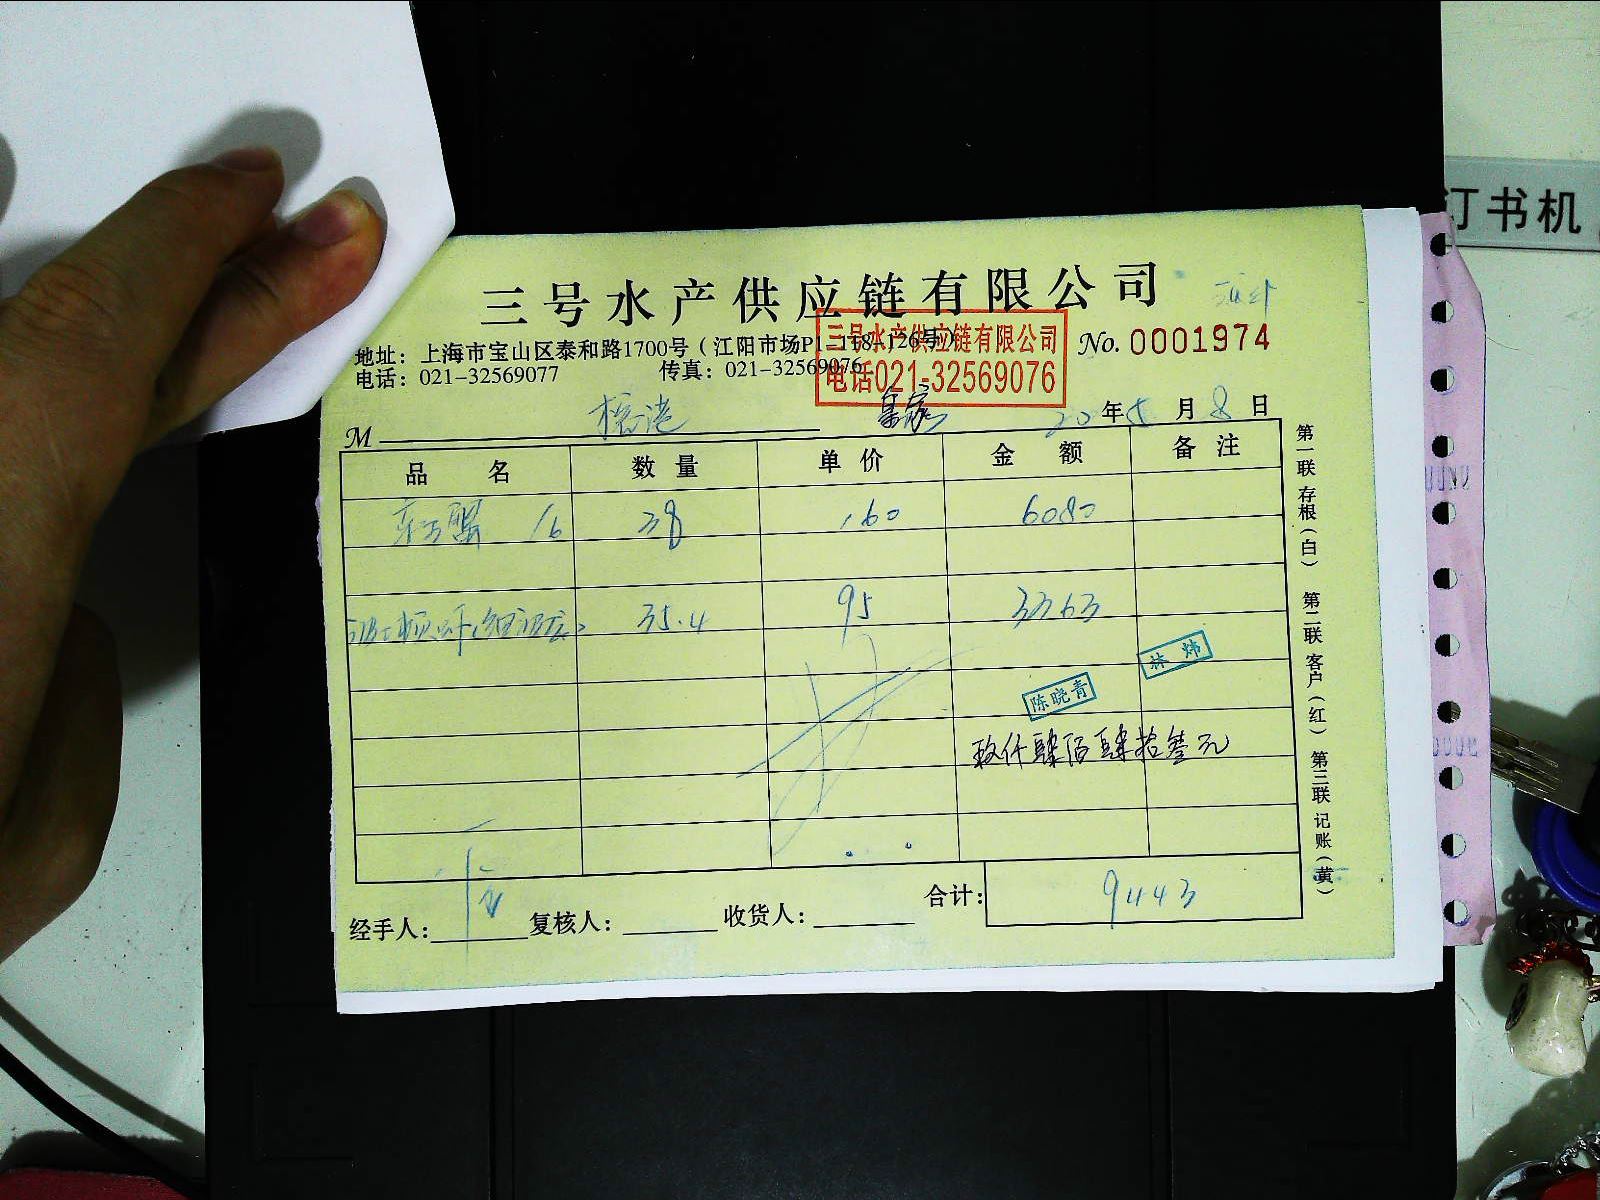 订书机
三号水产供应链有限公司
地址：上海市宝山区泰和路1700号（江阳市场P1-118-126号）
三号水产供应链有限公司
No. 0001974
电话：021-32569077 传真：021-32569076
电话021-32569076
20年5月8日
M
品名 数量 单价 金额 备注
蟹 16 38 160 6080
35.4 95 3363
林炜
陈晓青
玖仟肆佰肆拾叁元
合计： 9443
经手人： 复核人： 收货人：
第一联 存根（白） 第二联 客户（红） 第三联 记账（黄）